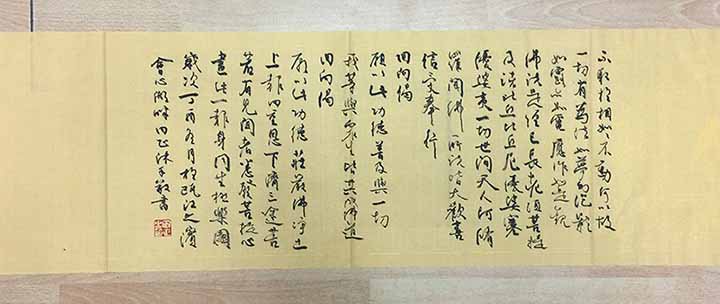 不取於相如如不動何以故
一切有為法如夢幻泡影
如露亦如電應作如是觀
佛說是經已長老須菩提
及諸比丘比丘尼優婆塞
優婆夷一切世間天人阿脩
羅聞佛所說皆大歡喜
信受奉行
回向偈
願以此功德普及與一切
我等與眾生皆共成佛道
回向偈
願以此功德莊嚴佛淨土
上報四重恩下濟三途苦
若有見聞者悉發菩提心
盡此一報身同生極樂國
歲次丁酉冬月於甌江之濱
會心湖畔沐手敬書